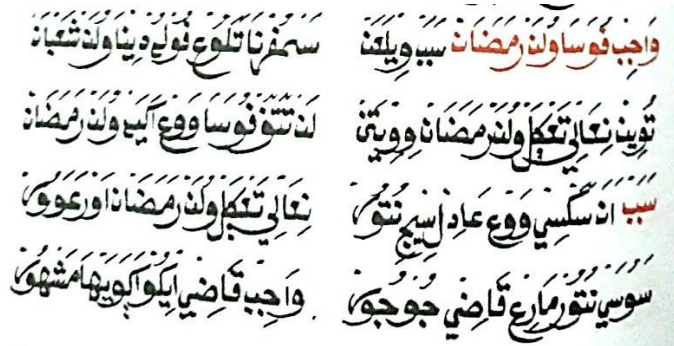 وَاجِب فُوسَا وُلَن رَمَضَان سَبَب وِيلَڠَن سَمْفُرنَا تَلُوڠ فُولُه دِينَا وُلَن شَعْبَان
تُوِين نِڠَالِي تَڠْڮَل وُلَن رَمَضَان وِوِيتَن لَن تَتَف فُوسَا وَوڠ اَكَيه وُلَن رَمَضَان
سَبَب انَ سَكْسِي وَوڠ عَادِل سِيجِ نُتُور نِڠَالِي تَڠْڮَل وُلَن رَمَضَان اَورَ ڠَوُور
سُوسِي نُتُور مَارِڠ قَاضِي جُوجُور وَاجِب قَاضِي اِيكُو اَڮَويهَا مَشْهُور